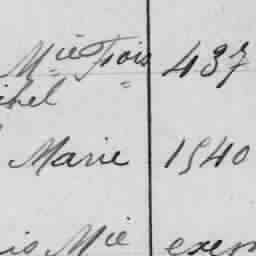 Mie Frois 437
ihel
Marie 1540
is Mie exem